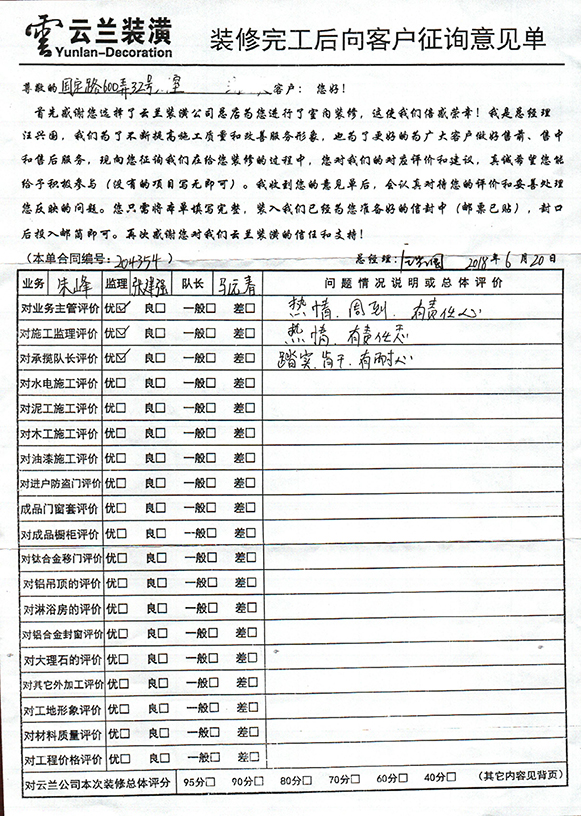 雲 云兰装潢
Yunlan-Decoration
装修完工后向客户征询意见单
尊敬的 固定路600弄32号 室 客户： 您好！
首先感谢您选择了云兰装潢公司总店为您进行了室内装修，这使我们倍感荣幸！我是总经理
汪兴国，我们为了不断提高施工质量和改善服务形象，也为了更好的为广大客户做好售前、售中
和售后服务，现向您征询我们在给您装修的过程中，您对我们的对应评价和建议，真诚希望您能
给予积极参与（没有的项目写无即可）。我收到您的意见单后，会认真对待您的评价和妥善处理
您反映的问题。您只需将本单填写完整，装入我们已经为您准备好的信封中（邮票已贴），封口
后投入邮筒即可。再次感谢您对我们云兰装潢的信任和支持！
（本单合同编号：204354） 总经理：汪兴国 2018年6月20日
业务 朱峰 监理 张建强 队长 马远春 问题情况说明或总体评价
对业务主管评价 优☑ 良□ 一般□ 差□ 热情、周到、有责任心
对施工监理评价 优☑ 良□ 一般□ 差□ 热情、有责任心
对承揽队长评价 优☑ 良□ 一般□ 差□ 踏实、肯干、有耐心
对水电施工评价 优□ 良□ 一般□ 差□
对泥工施工评价 优□ 良□ 一般□ 差□
对木工施工评价 优□ 良□ 一般□ 差□
对油漆施工评价 优□ 良□ 一般□ 差□
对进户防盗门评价 优□ 良□ 一般□ 差□
成品门窗套评价 优□ 良□ 一般□ 差□
对成品橱柜评价 优□ 良□ 一般□ 差□
对钛合金移门评价 优□ 良□ 一般□ 差□
对铝吊顶的评价 优□ 良□ 一般□ 差□
对淋浴房的评价 优□ 良□ 一般□ 差□
对铝合金封窗评价 优□ 良□ 一般□ 差□
对大理石的评价 优□ 良□ 一般□ 差□
对其它外加工评价 优□ 良□ 一般□ 差□
对工地形象评价 优□ 良□ 一般□ 差□
对材料质量评价 优□ 良□ 一般□ 差□
对工程价格评价 优□ 良□ 一般□ 差□
对云兰公司本次装修总体评分 95分□ 90分□ 80分□ 70分□ 60分□ 40分□ （其它内容见背页）